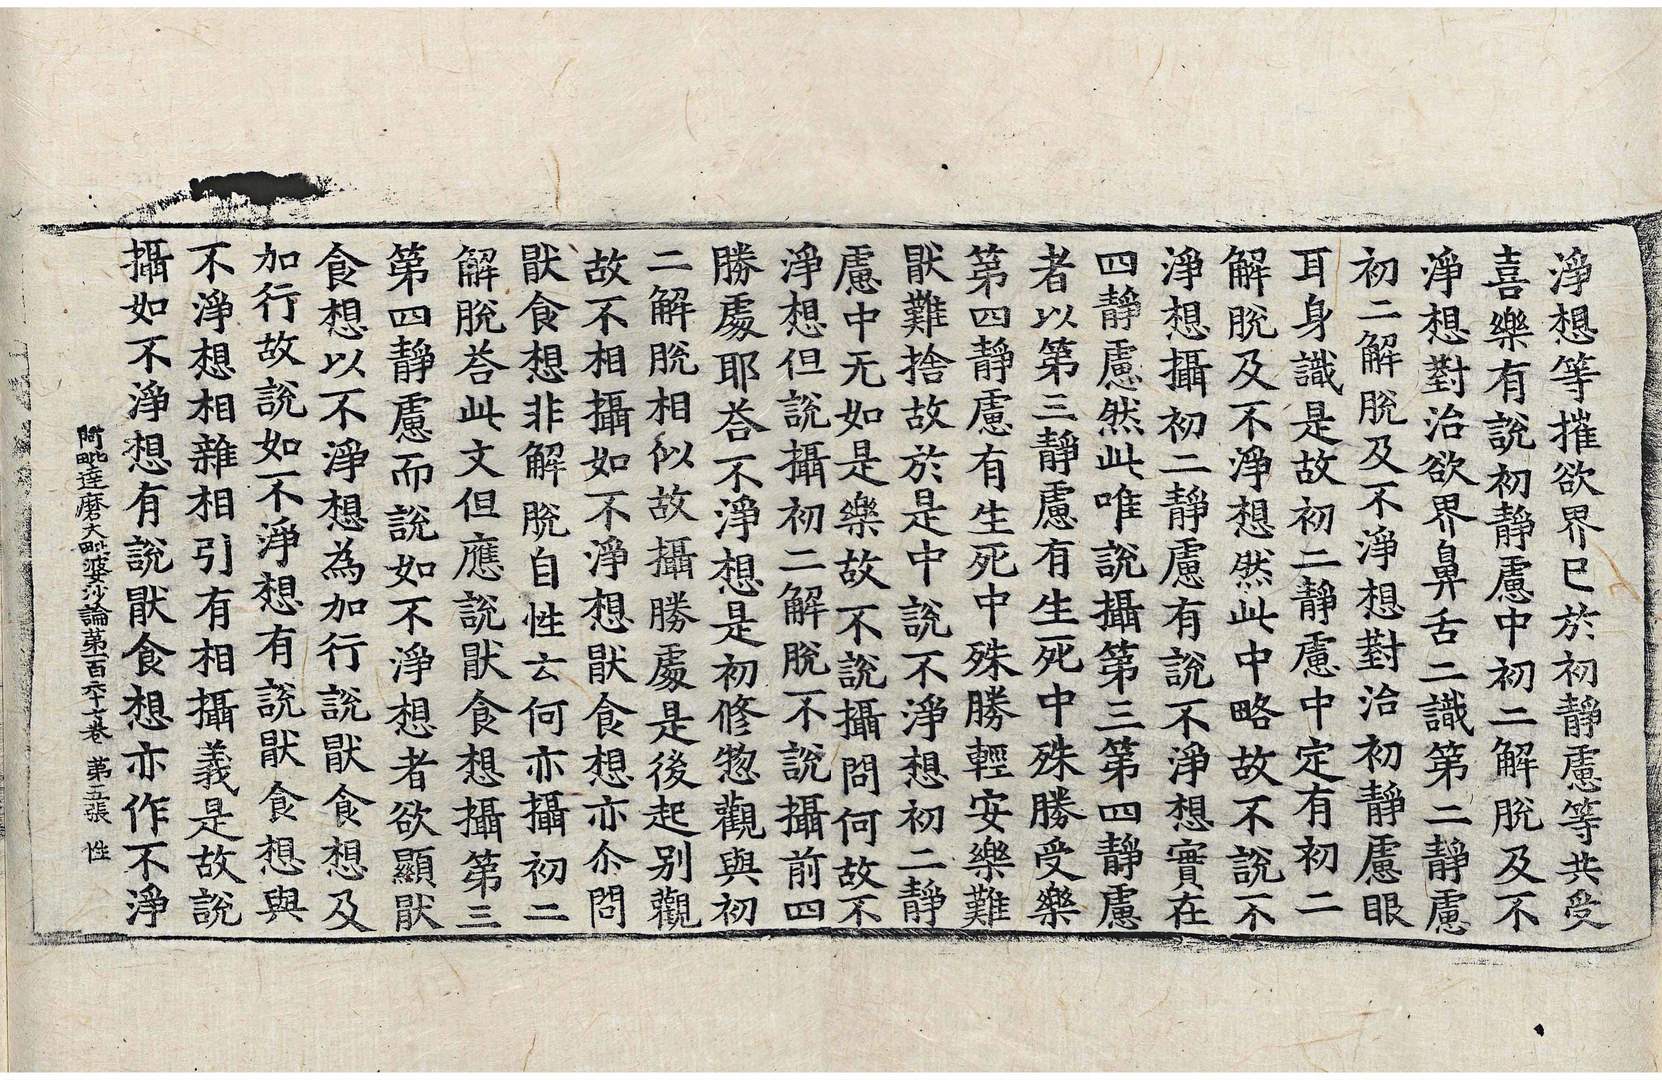 淨想等摧欲界已於初靜慮等共受
喜樂有說初靜慮中初二解脫及不
淨想對治欲界鼻舌二識第二靜慮
初二解脫及不淨想對治初靜慮眼
耳身識是故初二靜慮中定有初二
解脫及不淨想然此中略故不說不
淨想攝初二靜慮有說不淨想實在
四靜慮然此唯說攝第三第四靜慮
者以第三靜慮有生死中殊勝受樂
第四靜慮有生死中殊勝輕安樂難
猒難捨故於是中說不淨想初二靜
慮中无如是樂故不說攝問何故不
淨想但說攝初二解脫不說攝前四
勝處耶荅不淨想是初修惣觀與初
二解脫相似故攝勝處是後起別觀
故不相攝如不淨想猒食想亦尒問
猒食想非解脫自性云何亦攝初二
解脫荅此文但應說猒食想攝第三
第四靜慮而說如不淨想者欲顯猒
食想以不淨想為加行說猒食想及
加行故說如不淨想有說猒食想與
不淨想相雜相引有相攝義是故說
攝如不淨想有說猒食想亦作不淨
阿毗達磨大毗婆沙論第一百六十六卷 第五張 性